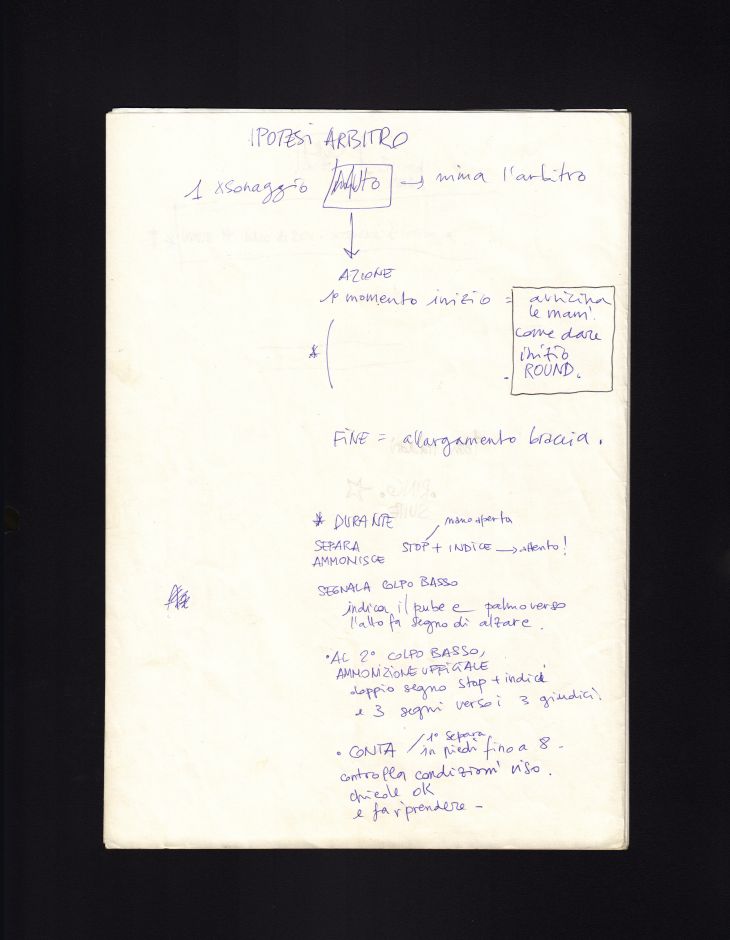 IPOTESI ARBITRO
1 xsonaggio MUTO → mima l'arbitro
AZIONE
1° momento inizio = avvicina
le mani
come dare
inizio
ROUND.
*
FINE = allargamento braccia.
* DURANTE
mano aperta
SEPARA STOP + INDICE → attento!
AMMONISCE
SEGNALA COLPO BASSO
indica il pube e palmo verso
l'alto fa segno di alzare.
• AL 2° COLPO BASSO,
AMMONIZIONE UFFICIALE
doppio segno stop + indice
e 3 segni verso i 3 giudici.
1° separa
• CONTA in piedi fino a 8 -
controlla condizioni viso.
chiede OK
e fa riprendere -